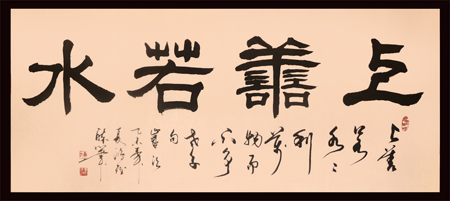 上善若水
上善
若
水〻
利
萬
物而
不争
老子
句